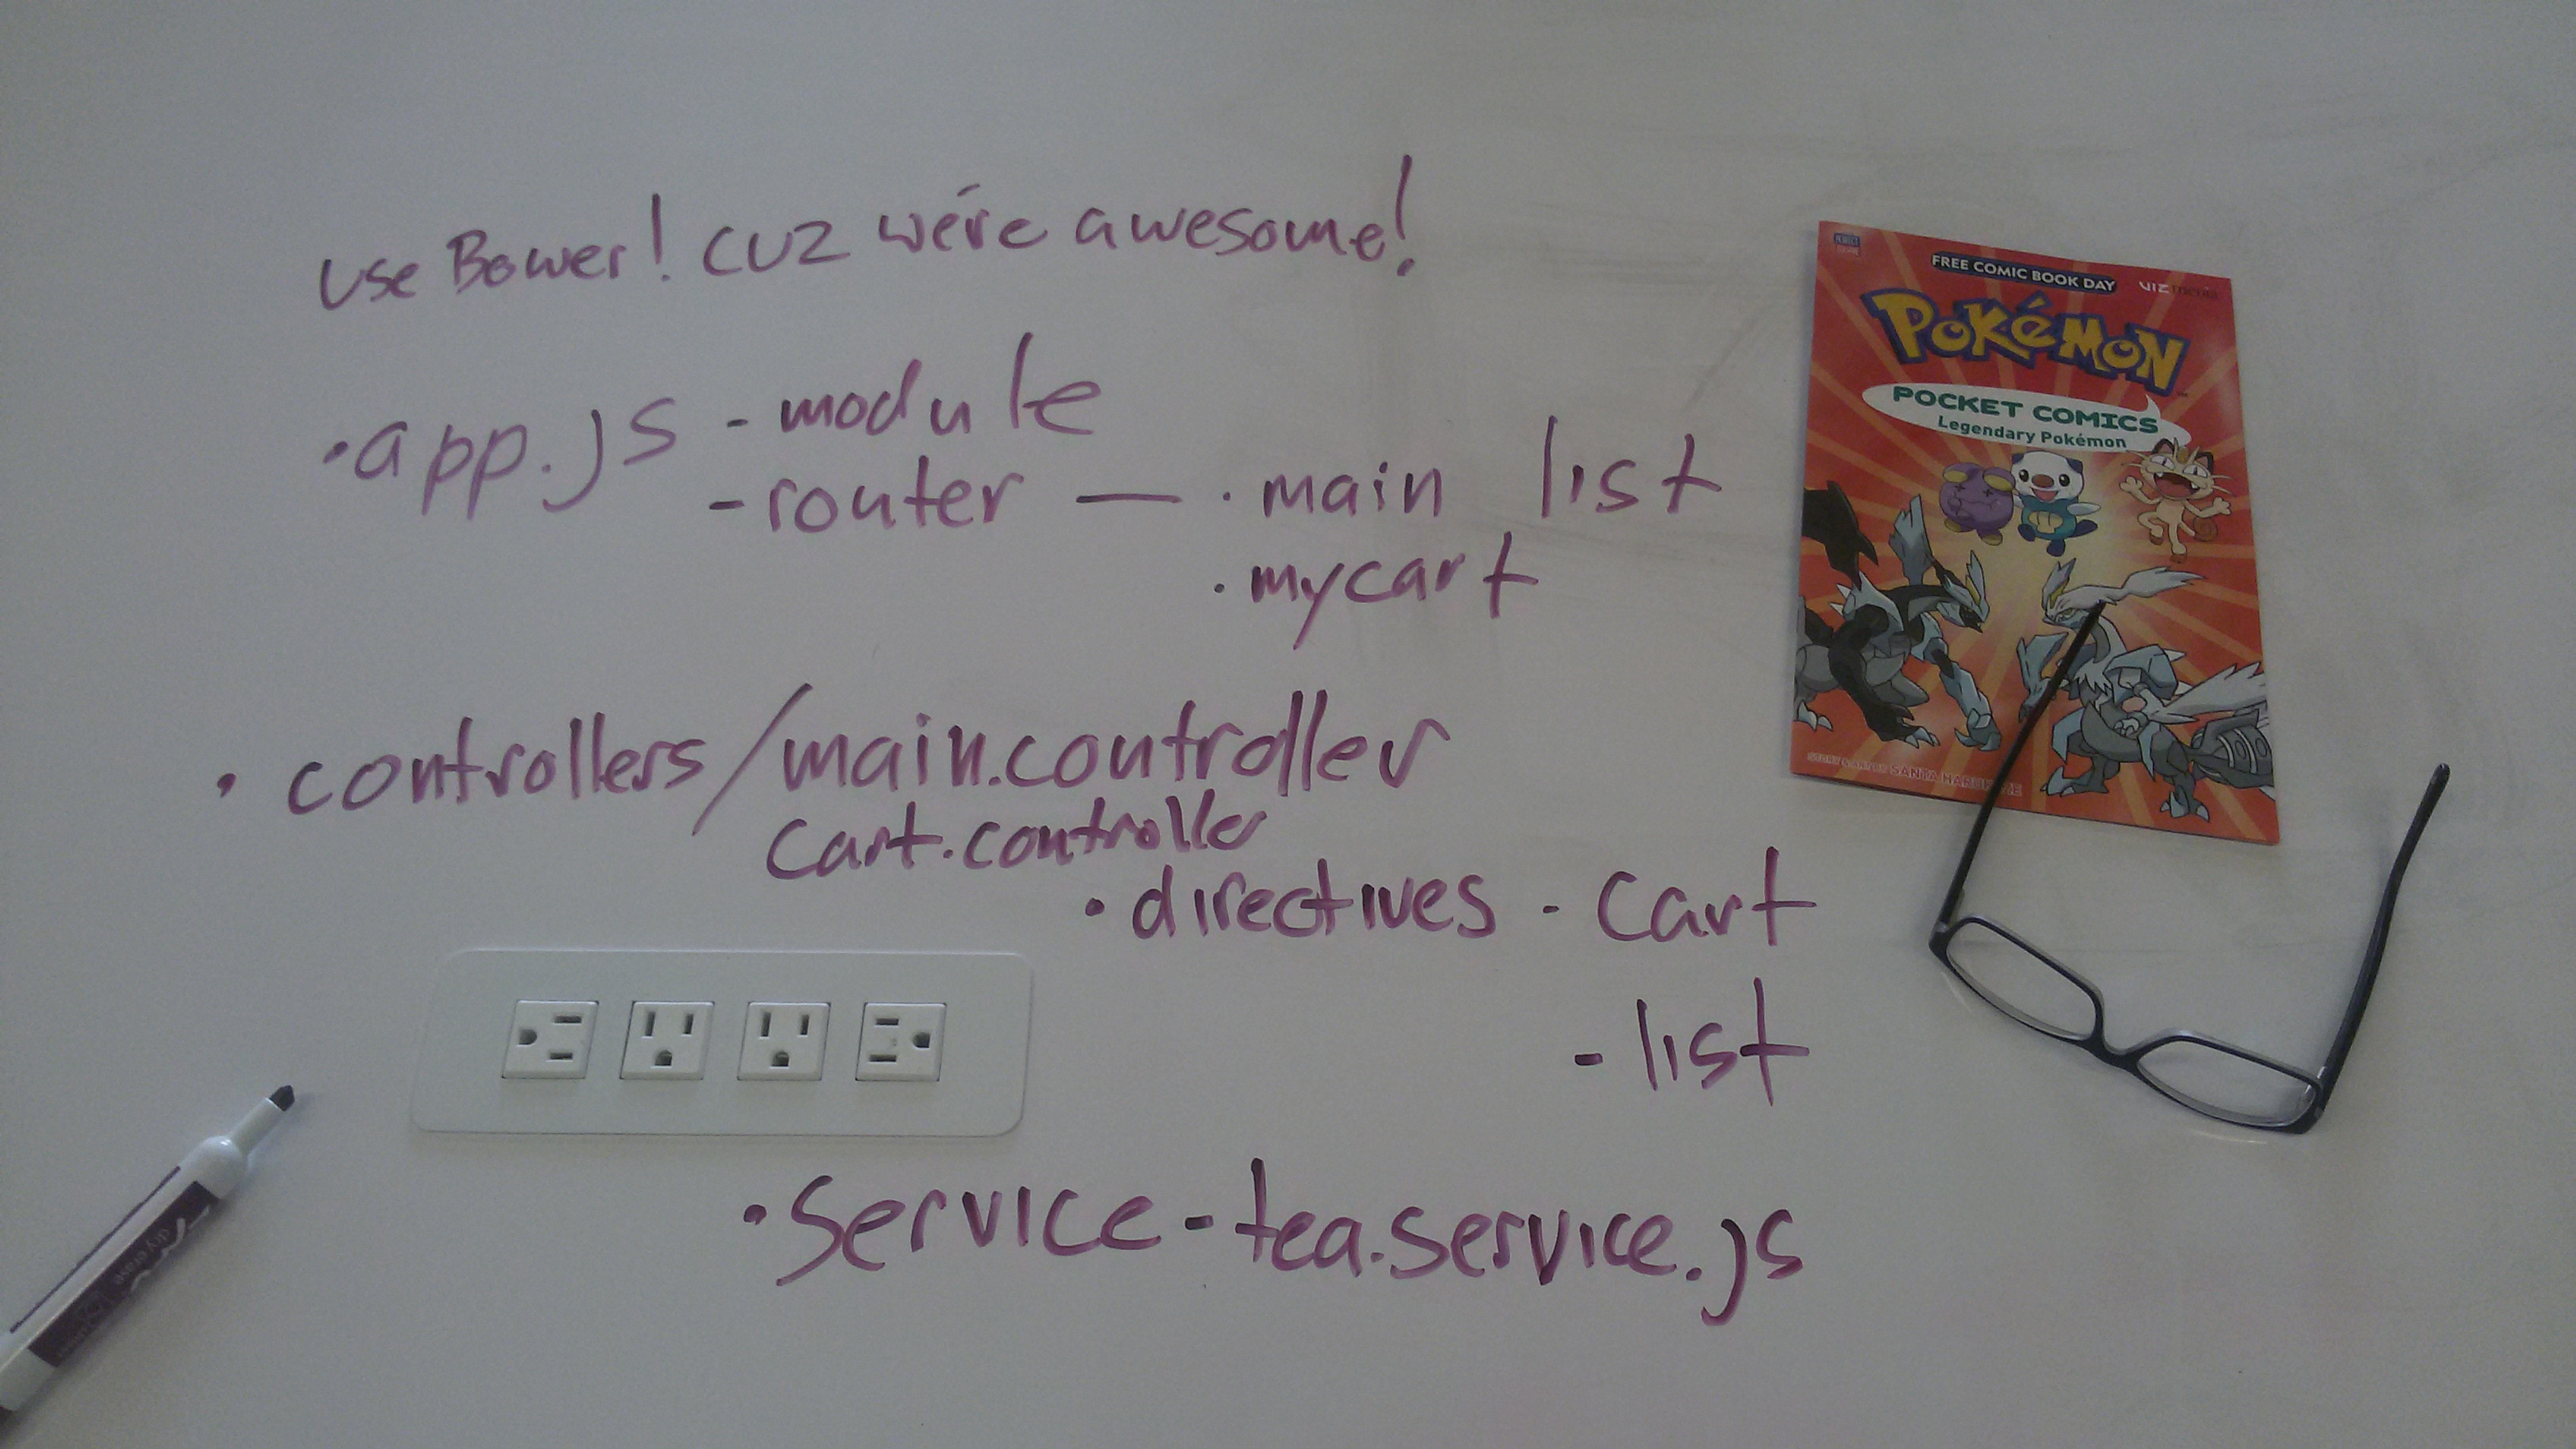 use Bower! CUZ we're awesome!
• app.js - module
- router — • main list
• mycart
• controllers/main.controller
cart.controller
• directives - cart
- list
• service - tea.service.js
FREE COMIC BOOK DAY
VIZ media
POKéMON
POCKET COMICS
Legendary Pokémon
dry erase